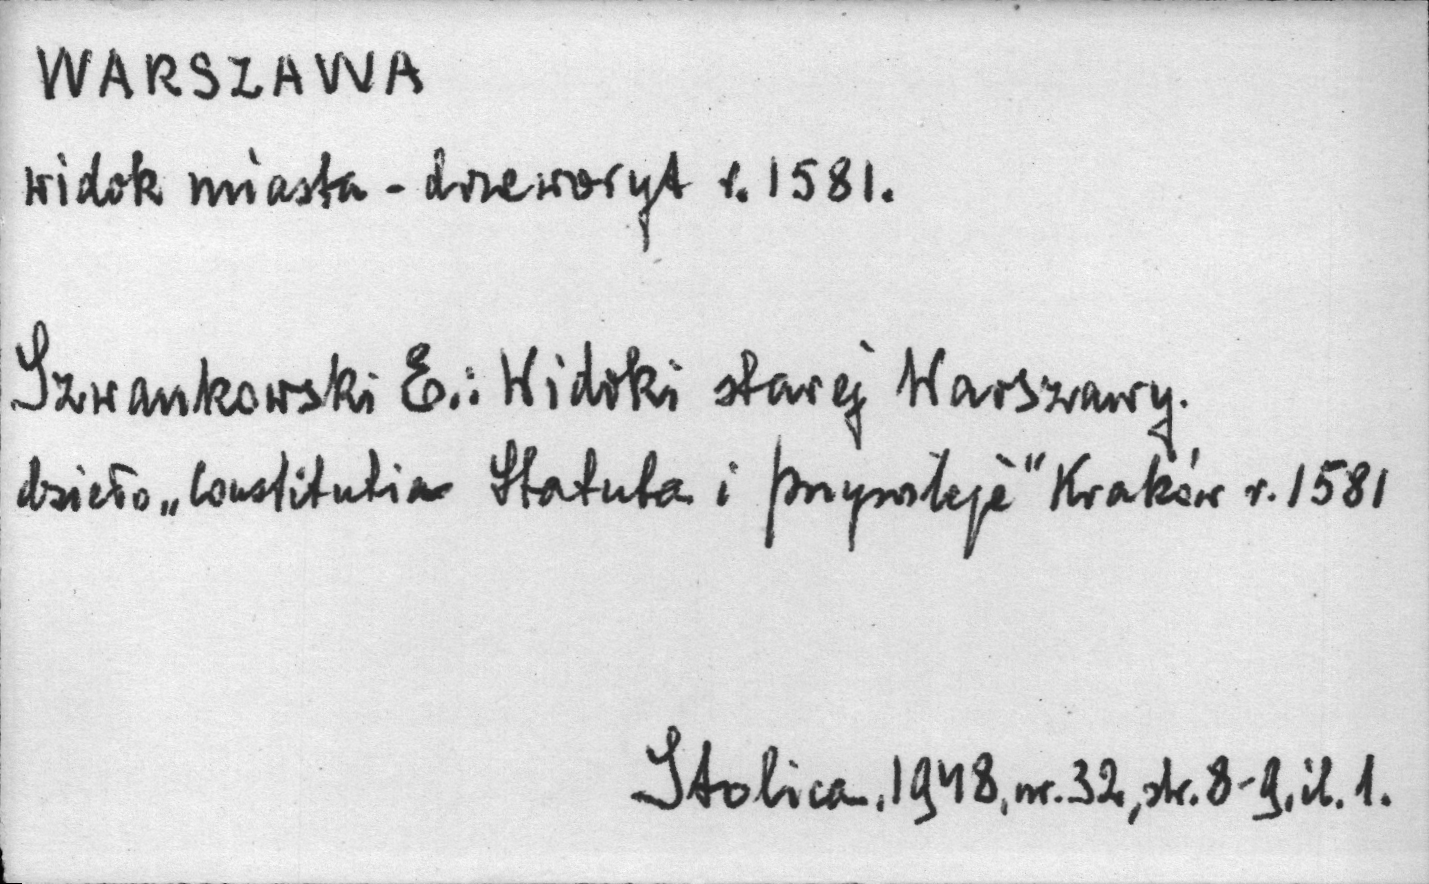 WARSZAWA
widok miasta - drzeworyt r. 1581.
Szwankowski E.: Widoki starej Warszawy.
dzieło „Constitutia Statuta i przywileje" Kraków r. 1581
Stolica, 1948, nr. 32, str. 8-9, il. 1.